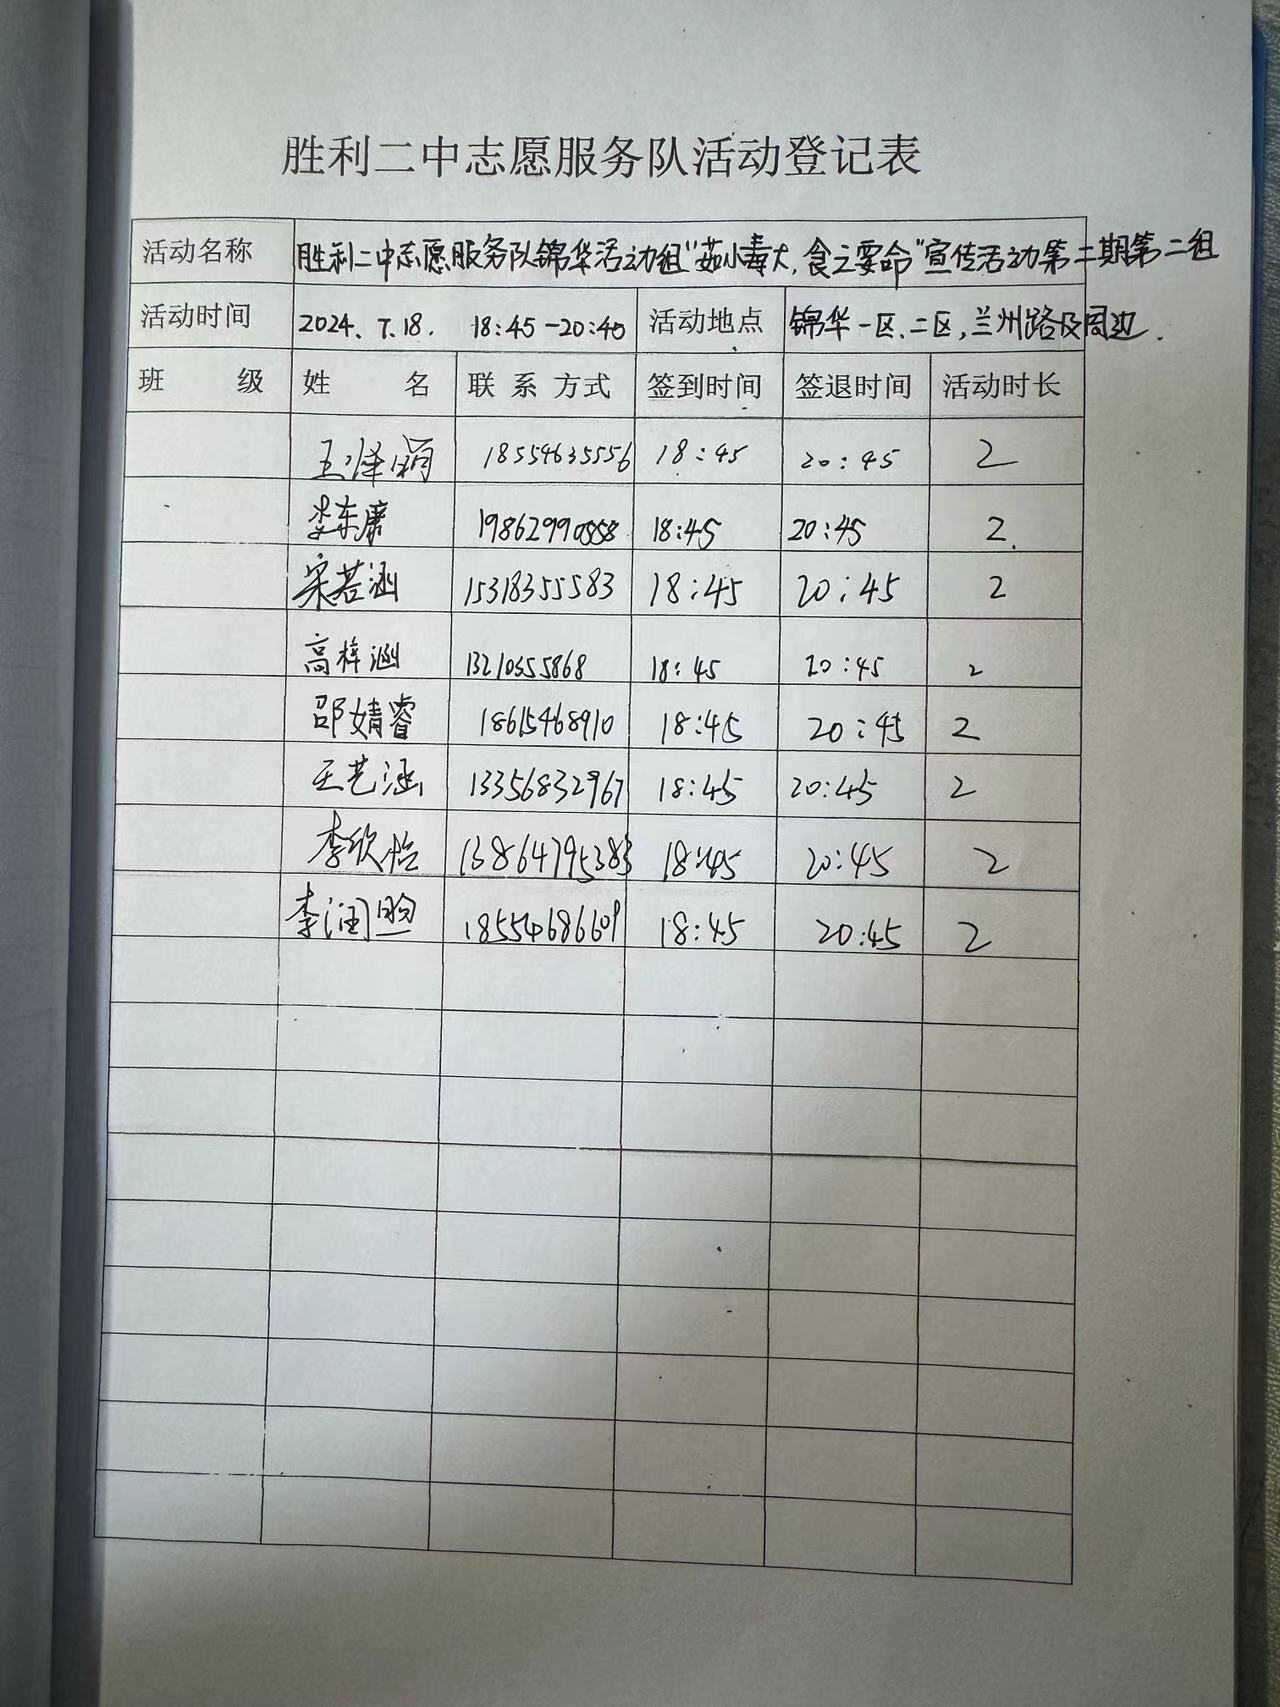 胜利二中志愿服务队活动登记表
活动名称 胜利二中志愿服务队锦华活动组"菇小毒大,食之要命"宣传活动第二期第二组
活动时间 2024.7.18. 18:45-20:45 活动地点 锦华一区、二区,兰州路及周边.
班 级 姓 名 联 系 方式 签到时间 签退时间 活动时长
王泽涓 18554635556 18:45 20:45 2
李东康 19862990558 18:45 20:45 2.
宋若涵 15318355583 18:45 20:45 2
高梓涵 13210355868 18:45 20:45 2
邵婧睿 18615468910 18:45 20:45 2
王艺涵 13356832967 18:45 20:45 2
李欣怡 13864795383 18:45 20:45 2
李润 18554686609 18:45 20:45 2